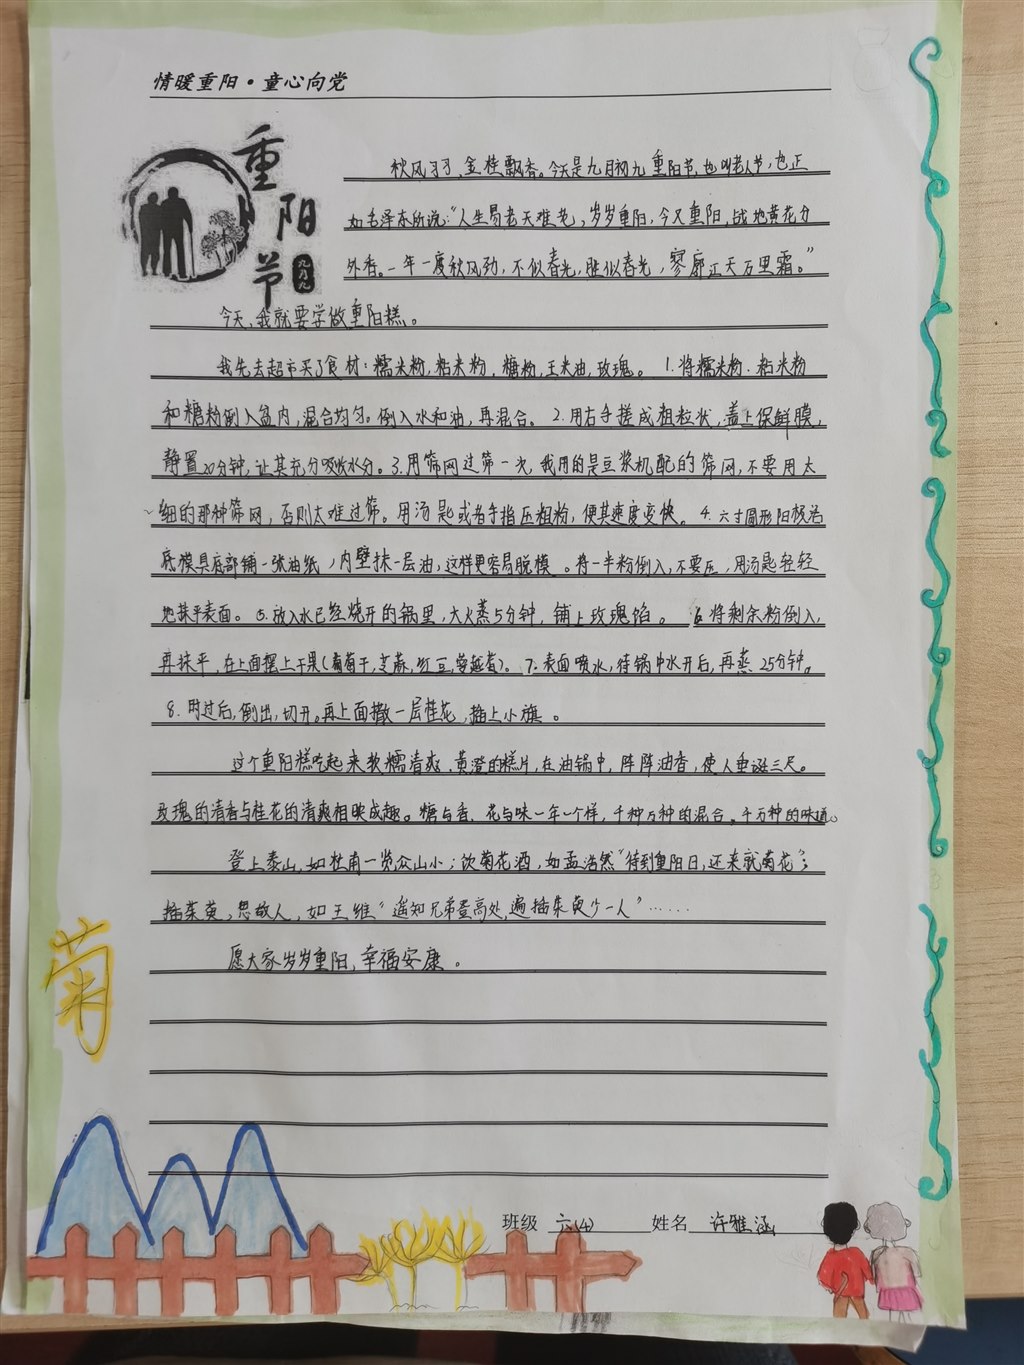 情暖重阳·童心向党
重阳节
九月九
秋风习习,金桂飘香。今天是九月初九重阳节,也叫老人节,也正
如毛泽东所说:“人生易老天难老,岁岁重阳,今又重阳,战地黄花分
外香。一年一度秋风劲,不似春光,胜似春光,寥廓江天万里霜。”
今天,我就要学做重阳糕。
我先去超市买了食材:糯米粉,粘米粉,糖粉,玉米油,玫瑰。1.将糯米粉.粘米粉
和糖粉倒入盆内,混合均匀。倒入水和油,再混合。2.用右手搓成粗粒状,盖上保鲜膜,
静置20分钟,让其充分吸收水分。3.用筛网过筛一次,我用的是豆浆机配的筛网,不要用太
细的那种筛网,否则太难过筛。用汤匙或者手指压粗粉,使其速度变快。4.六寸圆形阳极活
底模具底部铺一张油纸,内壁抹一层油,这样更容易脱模。将一半粉倒入,不要压,用汤匙轻轻
地抹平表面。5.放入水已经烧开的锅里,大火蒸5分钟,铺上玫瑰馅。6.将剩余粉倒入,
再抹平,在上面摆上干果(葡萄干,芝麻,红豆,蔓越莓)。7.表面喷水,待锅中水开后,再蒸25分钟。
8.用过后,倒出,切开。再上面撒一层桂花,插上小旗。
这个重阳糕吃起来软糯清爽.黄澄的糕片,在油锅中,阵阵油香,使人垂涎三尺。
玫瑰的清香与桂花的清爽相映成趣。糖与香.花与味一年一个样,千种万种的混合。千万种的味道。
登上泰山,如杜甫一览众山小;饮菊花酒,如孟浩然“待到重阳日,还来就菊花”;
插茱萸,思故人,如王维“遥知兄弟登高处,遍插茱萸少一人”……
愿大家岁岁重阳,幸福安康。
菊
班级 六(4) 姓名 许雅涵